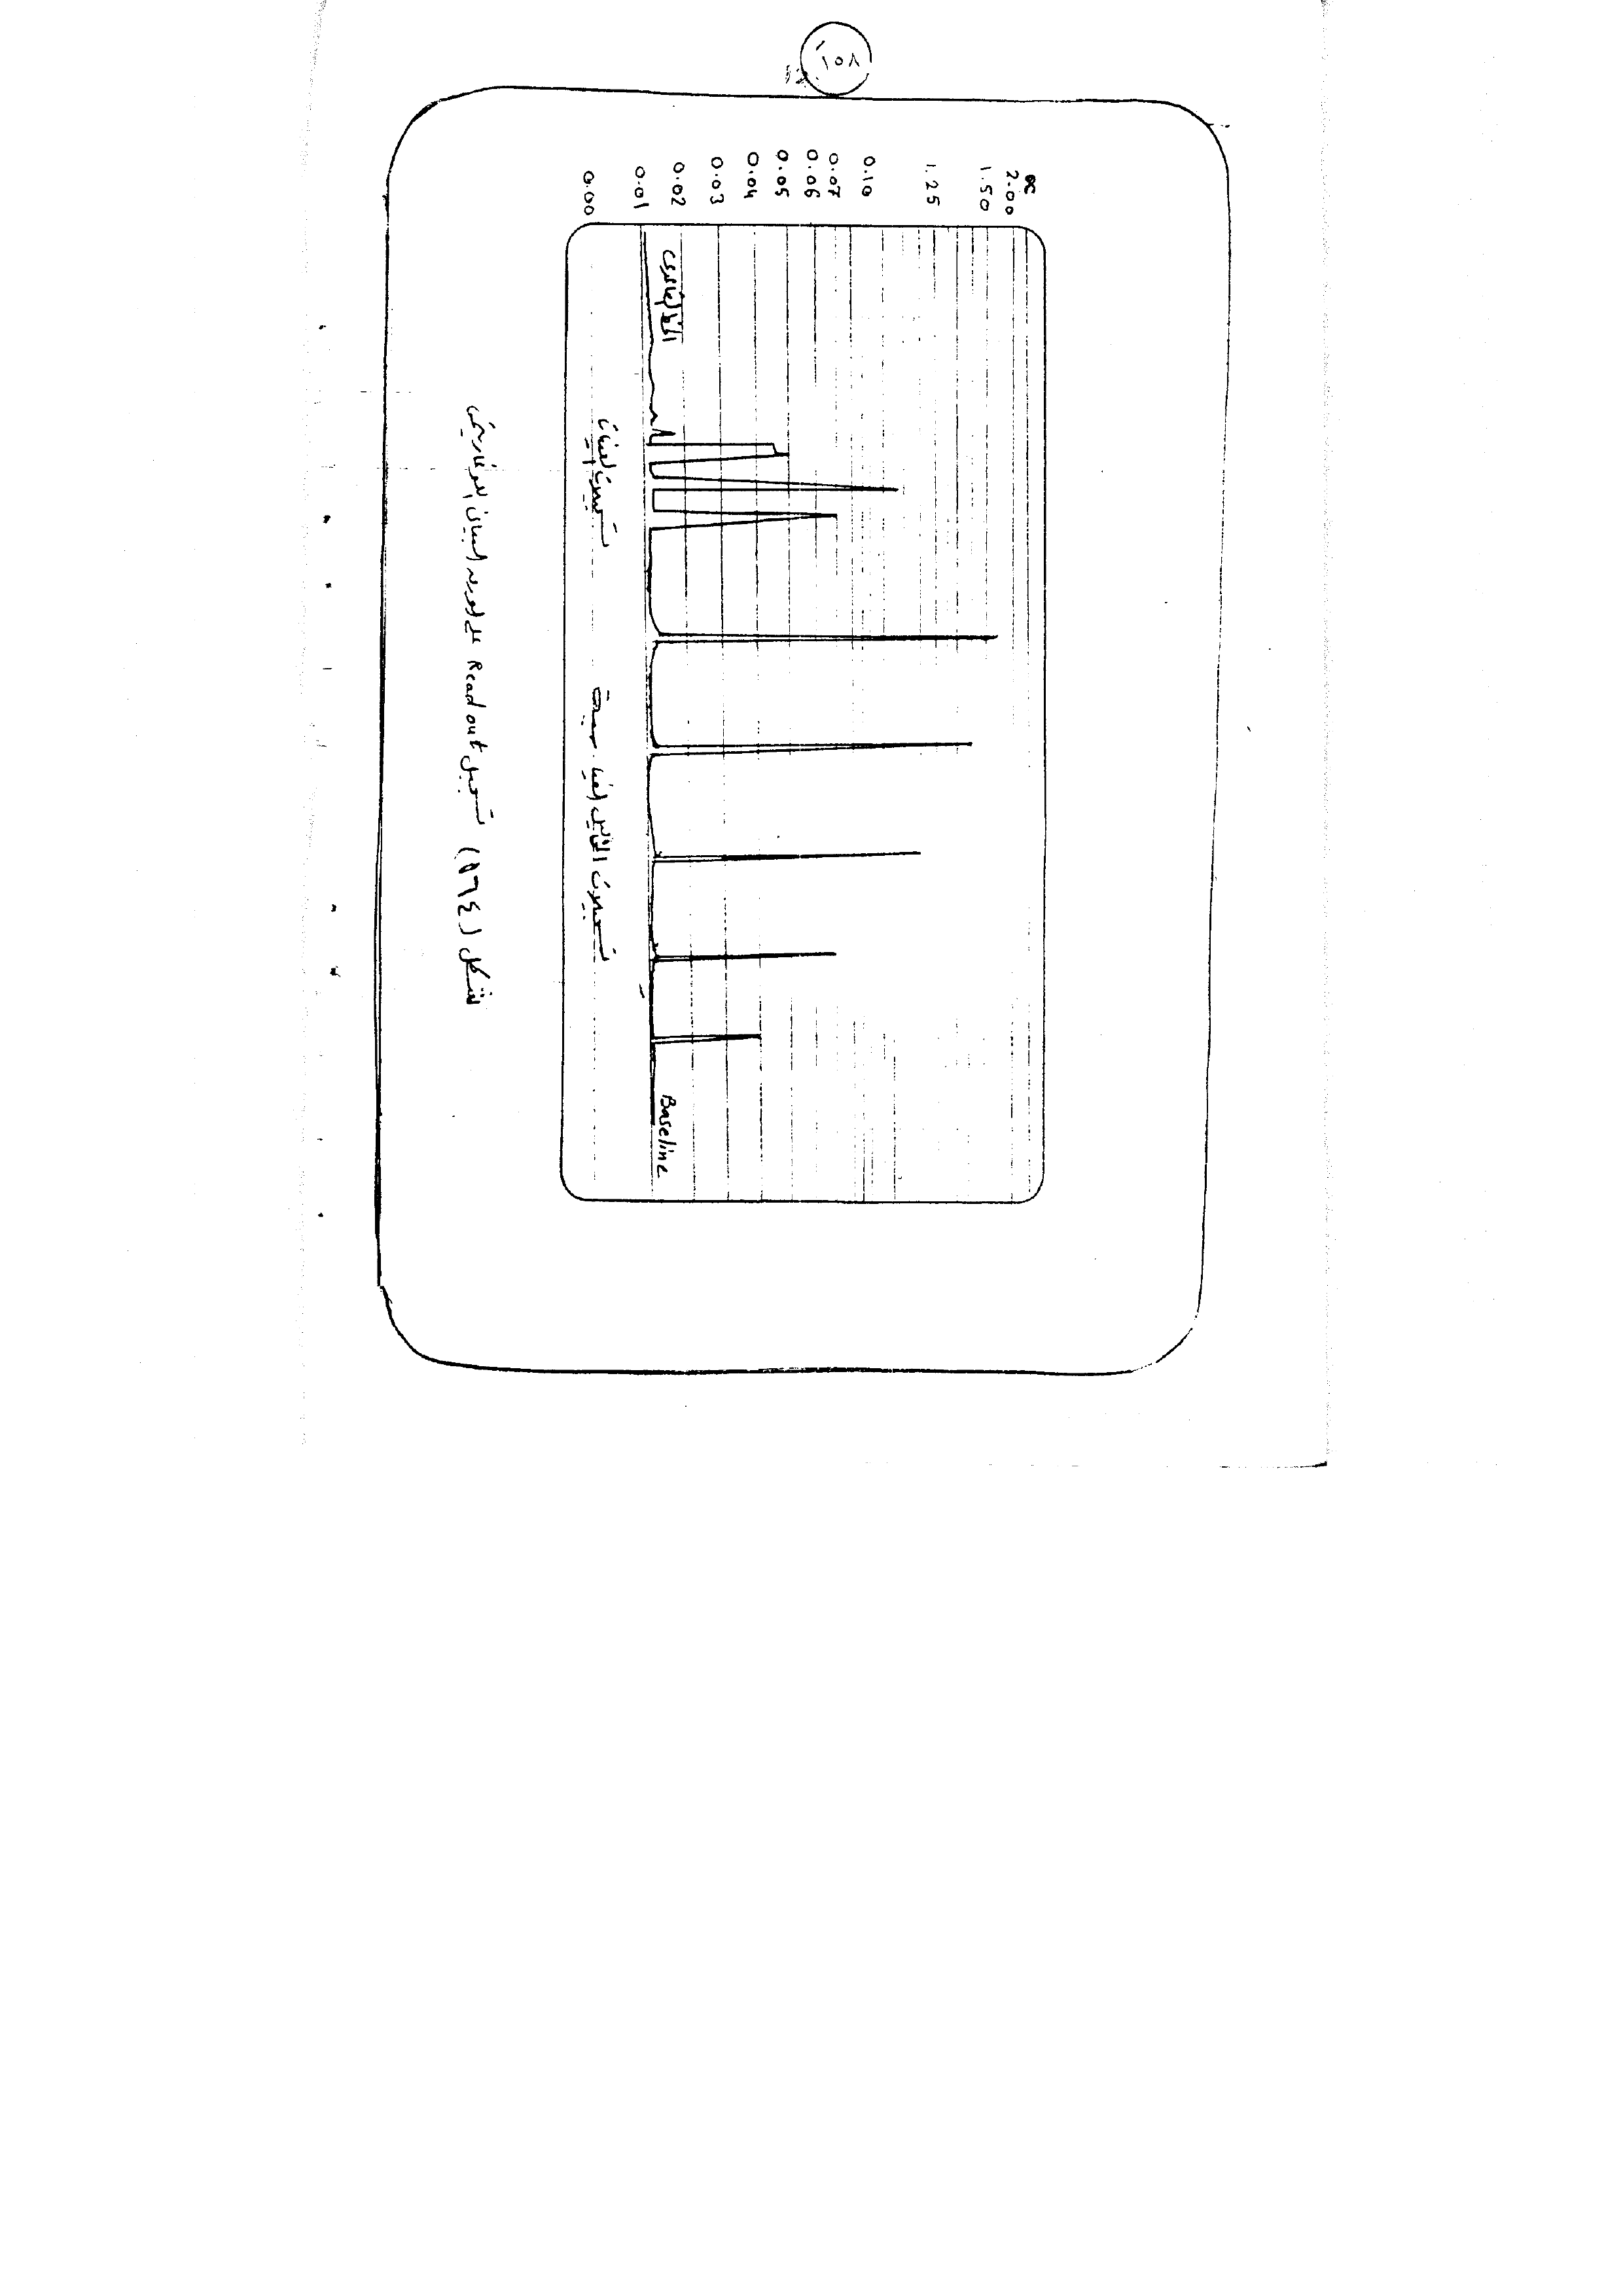 ١٥٨
∝
2.00
1.50
1.25
0.10
0.07
0.06
0.05
0.04
0.03
0.02
0.01
0.00
الخط القاعدى
Baseline
تسجيلات العينات
تسجيلات المحاليل القياسية
شكل (٥٦٤) تسجيل Read out على الورق البيانى اللوغاريتمى